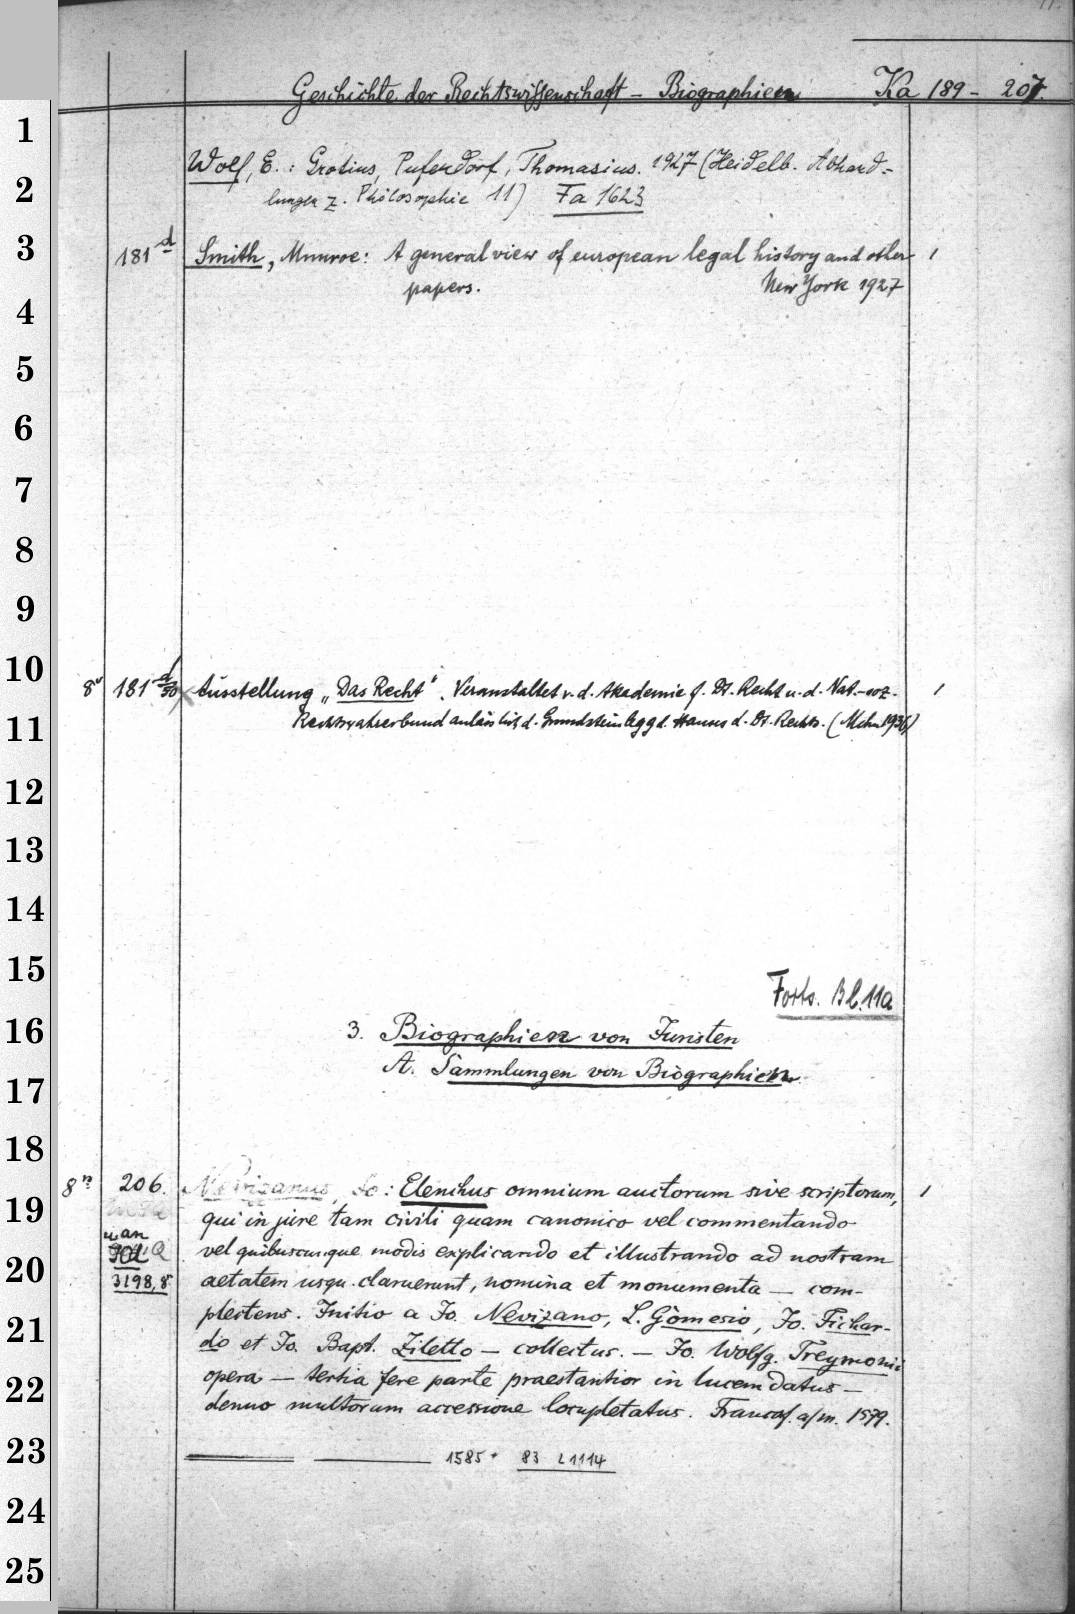 11.
Geschichte der Rechtswissenschaft – Biographien Ka 189 – 207.
Wolf, E.: Grotius, Pufendorf, Thomasius. 1927 (Heidelb. Abhand-
lungen z. Philosophie 11) Fa 1623
181 d Smith, Munroe: A general view of european legal history and other 1
papers. New York 1927
8° 181 d/50 Ausstellung „Das Recht“. Veranstaltet v. d. Akademie f. Dt. Recht u. d. Nat.-soz. 1
Rechtswahrerbund anlässlich d. Grundsteinlegg d. Hauses d. Dt. Rechts. (Mchn 1936)
Forts. Bl. 11a
3. Biographien von Juristen
A. Sammlungen von Biographien.
8° 206. Nevizanus, Jo: Elenchus omnium auctorum sive scriptorum, 1
qui in jure tam civili quam canonico vel commentando
u. an
vel quibuscunque modis explicando et illustrando ad nostram
3198, 8°
aetatem usqu. claruerunt, nomina et monumenta – com-
plectens. Initio a Jo. Nevizano, L. Gomesio, Jo. Fichar-
do et Jo. Bapt. Ziletto – collectus. – Jo. Wolfg. Freymonii
opera – tertia fere parte praestantior in lucem datus –
denuo multorum accessione locupletatus. Francof. a/m. 1579.
1585 + 83 L 1114
1
2
3
4
5
6
7
8
9
10
11
12
13
14
15
16
17
18
19
20
21
22
23
24
25